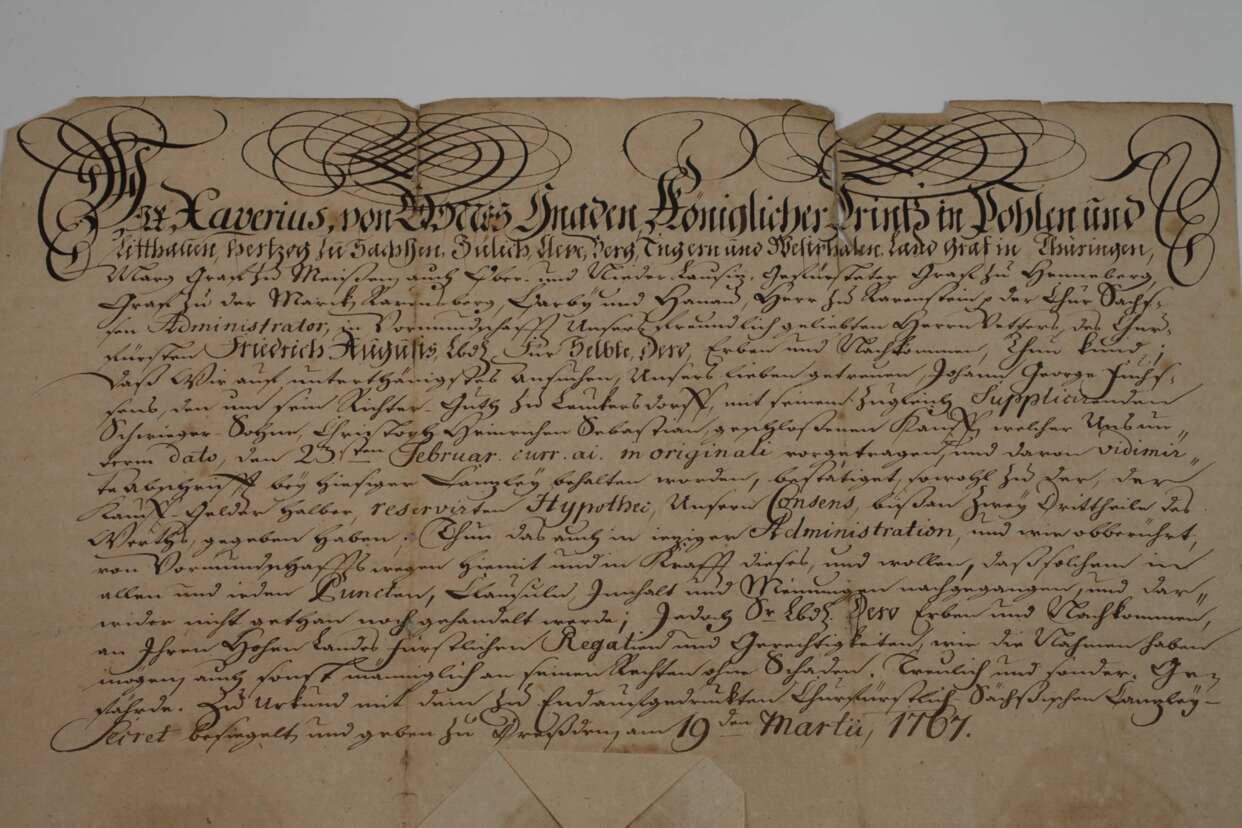 Wir Xaverius, von GOttes Gnaden, Königlicher Printz in Pohlen und
Litthauen, Hertzog zu Sachßen, Jülich, Cleve, Berg, Engern und Westphalen, Land Graf in Thüringen,
Marg Graf zu Meißen, auch Ober- und Nieder Lausiz, Gefürsteter Graf zu Henneberg,
Graf zu der Marck, Ravensberg, Barby und Hanau, Herr zu Ravenstein p der Chur Sachß-
sen Administrator, in Vormundschafft Unsers Freundlich geliebten Herrn Vetters, des Chur-
Fürsten Friedrich Augusts Lbd. Für Selbte, Dero, Erben und Nachkommen, Thun kund;
Daß Wir auf unterthänigstes Ansuchen, Unsers lieben getreuen, Johann George Fuchs-
sens, den um sein Richter-Guth zu Leukersdorff, mit seinem zugleich Supplicirenden
Schwieger-Sohne, Christoph Heinrichen Sebastian, geschloßenen Kauff, welcher Uns un-
term dato, den 23sten Februar. curr. ai. in originali vorgetragen, und davon vidimir-
te Abschrifft bey hiesiger Canzley behalten worden, bestätiget, sowohl zu der, der
Kauff-Gelder halber, reservirten Hypothec, Unsern Consens, biß an zwey Drittheile des
Werths, gegeben haben; Thun das auch in ieziger Administration, und wie obberührt,
von Vormundschaffts wegen hiermit und in Krafft dieses, und wollen, daß solchem in
allen und ieden Puncten, Clausuln, Innhalt und Meinungen nachgegangen, und dar-
wider nicht gethan noch gehandelt werde; Jedoch Sr. Lbd. Dero Erben und Nachkommen,
an Ihren Hohen Landes Fürstlichen Regalien und Gerechtigkeiten, wie die Nahmen haben
mögen, auch sonst männiglich an seinen Rechten ohne Schaden. Treulich und sonder Ge-
fährde. Zu Urkund mit dem zu End aufgedruckten Churfürstlich Sächßischen Canzley-
Secret besiegelt, und geben zu Dreßden, am 19den Martii, 1767.